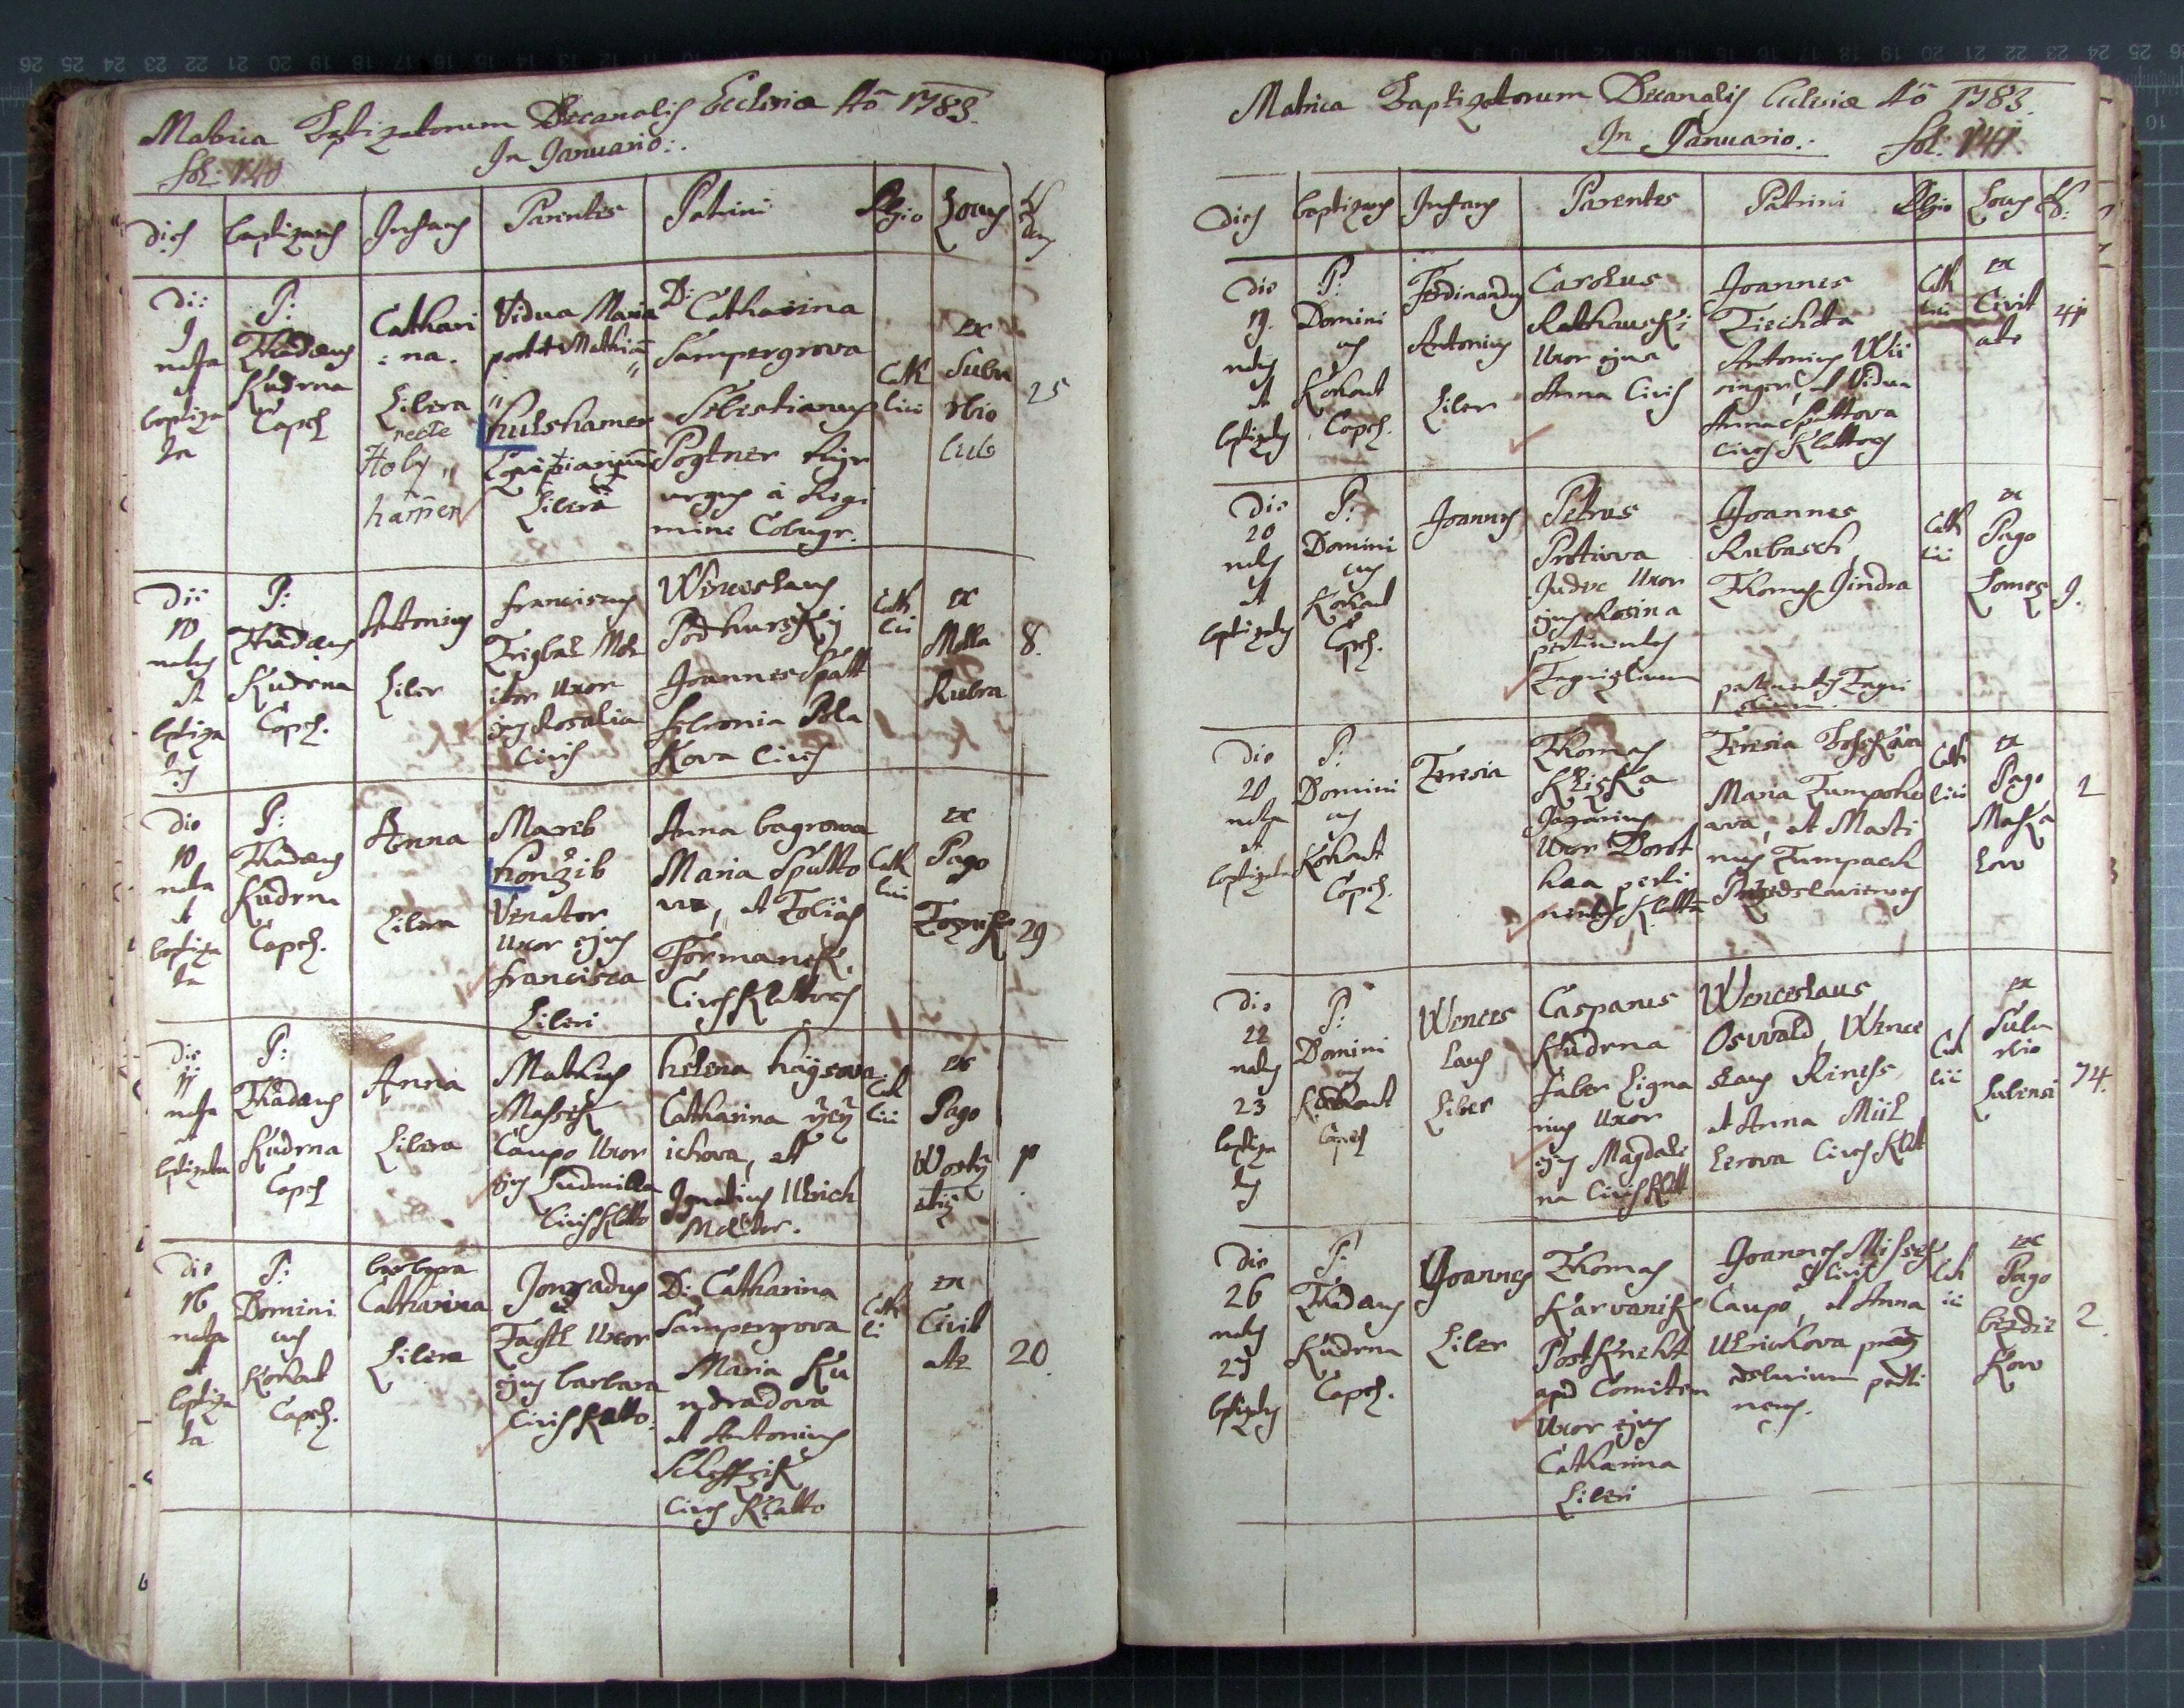 Matrica Baptizatorum Decanalis Ecclesiæ Aõ 1783.
In Januario:.
Fol: 140
Dies
baptizans
Infans
Parentes
Patrini
Rgio
Locus
Die
9
nata
et
baptiza
ta
P:
Thadæus
Kudrna
Capel
Cathari
:na.
Libera
recte
Holz„
ham̃er
Vidua Maria
post † Mathiã
„
hulshamer
Libera
D: Catharina
Sampergrova
Sebestianus
Pogtner
urgus a Regi
mine Cobugr.
Cath
lici
ex
Subu
rbio
25
Die
10
natus
et
baptiza
tus
P:
Thadæus
Kudrna
Capel.
Antonius
Liber
franciscus
Mol
itor Uxor
ejus Rosalia
Cives
Wenceslaus
Podhurskÿ
Joannes Spatt
Pola
Kova Cives
Cath
lici
ex
Molla
Rubra
8.
Die
10
nata
et
baptiza
ta
P:
Thadæus
Kudrna
Capel.
Anna
Libera
Mareb
Konzib
Venator
Uxor ejus
francisca
Liberi
Anna bagrowa
Maria Spatto
wa, et Tobias
Formanek,
Cives Klattov
Cath
lici
ex
Pago
29
Die
11
nata
et
baptizata
P:
Thadæus
Kudrna
Capel
Anna
Libera
Mathias
Massek
Caupo Uxor
ejus Ludmilla
Cives Klatto
helena haÿsova
Catharina
ichova, et
Ignatius Ulrich
Molitor.
Cath
lici
ex
Pago
1
Die
16
nata
et
baptiza
ta
P:
Domini
cus
Kohaut
Capel.
barbara
Catharina
Libera
Uxor
ejus barbara
Cives Klatto.
D: Catharina
Sampergrova
Maria Ku
ndradova
et Antonius
Cives Klatto
Cath
li
ex
Civit
ate
20
Matrica Baptizatorum Decanalis Ecclesiæ Aõ 1783.
In Januario.:
Fol: 141.
Dies
baptizans
Infans
Parentes
Patrini
Rlgio
Locus
Die
19.
natus
et
baptizatus
P:
Domini
cus
Kohaut
Capel.
Ferdinandus
Antonius
Liber
Carolus
Rathauski
Uxor ejus
Anna Cives
Joannes
Tiechota
Antonius Wii
ringer, et Vidua
Anna Spattova
Cives Klattov
Cath
lici
ex
Civit
ate
41
Die
20
natus
et
baptizatus
P:
Domini
cus
Kohaut
Capel.
Joannes
Petrus
Protiwa
Judex Uxor
ejus Rosina
pertinentes
Joannes
Rubasch,
Thomas Jindra
Cath
lici
ex
Pago
Lomez
9.
Die
20
nata
et
baptizata
P:
Domini
cus
Kohaut
Capel.
Teresia
Thomas
Kližka
Uxor Dorot
haa perti
nentes Klatta
Teresia
Maria Tumpoho
wa, et Marti
nus Tumpach
Cath
lici
ex
Pago
Maska
low
2
Die
22
natus
23
baptiza
tus
P:
Domini
cus
Kohaut
Capel
Wences
laus
Liber
Casparus
Kudrna
faber Ligna
rius Uxor
ejus Magdale
na Cives Klatt
Wenceslaus
Oswald, Wence
slaus Riness
et Anna Mül
lerova Cives Klat
Cat
lii
ex
Subu
rbio
74.
Die
26
natus
27
baptizatus
P:
Thadæus
Kudrna
Capel.
Joannes
Liber
Thomas
Karvanik
Postknecht
apud Comitem
Uxor ejus
Catharina
Liberi
Joannes Missek
Civit
Caupo, et Anna
Ulrichova
perti
nens.
Cath
ii
ex
Pago
bezdie
kow
2.